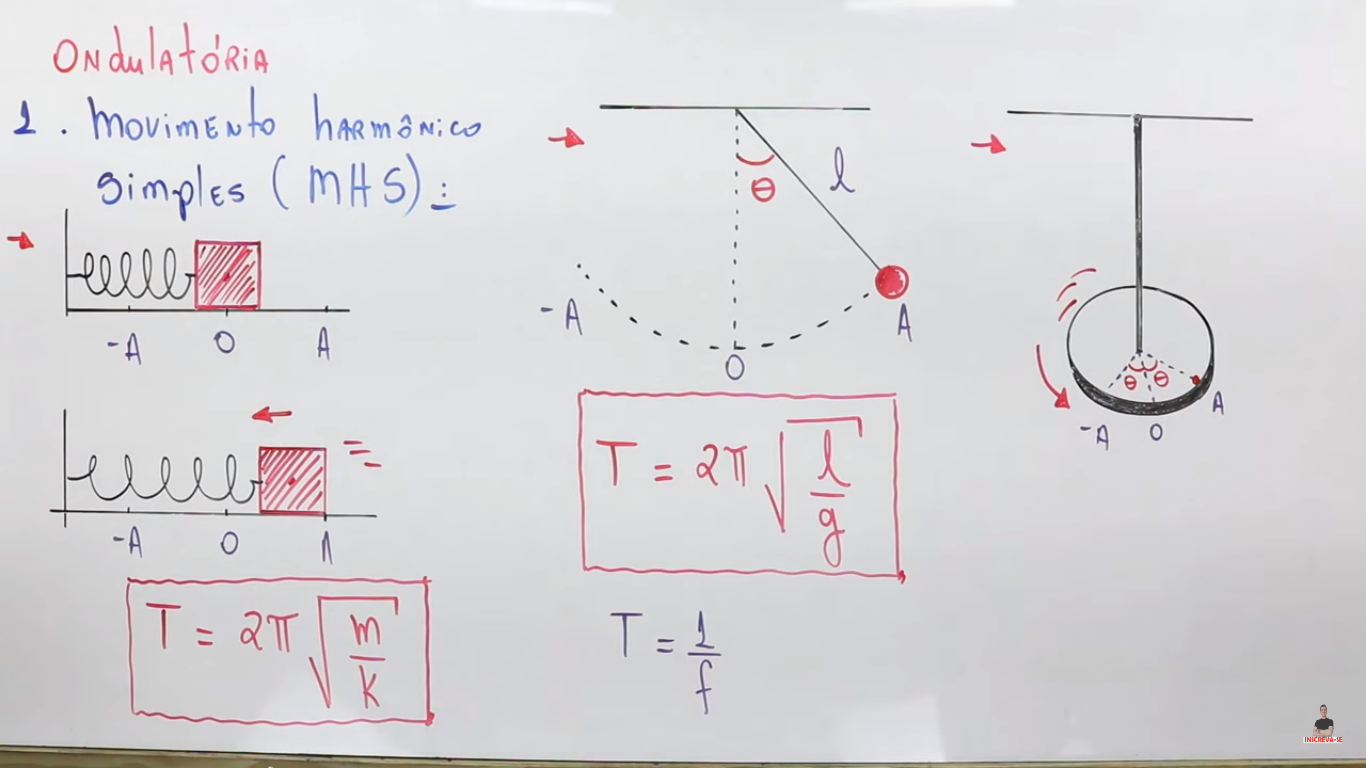 Ondulatória
1. Movimento harmônico
simples (MHS):
-A O A
-A O A
T = 2π √(m/k)
θ
l
-A
A
O
T = 2π √(l/g)
T = 1/f
θ θ
A
-A O
INSCREVA-SE